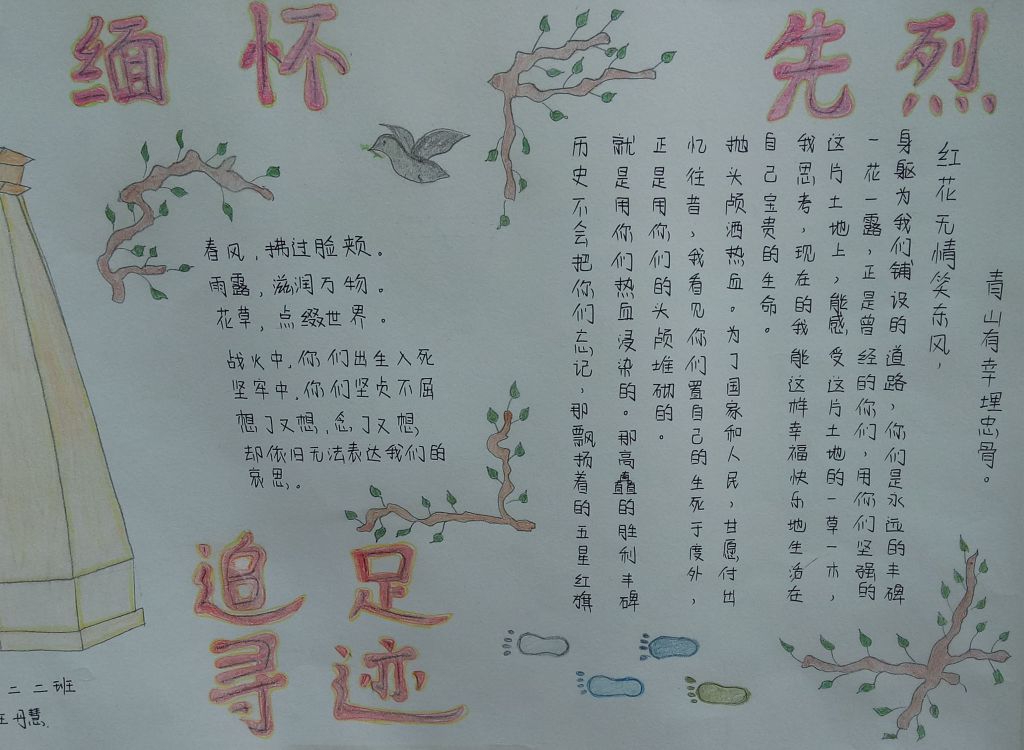 缅怀
先烈
春风,拂过脸颊。
雨露,滋润万物。
花草,点缀世界。
战火中,你们出生入死
坚牢中,你们坚贞不屈
想了又想,念了又想,
却依旧无法表达我们的
哀思。
追寻
足迹
青山有幸埋忠骨。
红花无情笑东风,
身躯为我们铺设的道路,你们是永远的丰碑
一花一露,正是曾经的你们,用你们坚强的
这片土地上,能感受这片土地的一草一木,
我思考,现在的我能这样幸福快乐地生活在
自己宝贵的生命。
抛头颅洒热血。为了国家和人民,甘愿付出
忆往昔,我看见你们置自己的生死于度外,
正是用你们的头颅堆砌的。
就是用你们热血浸染的。那高矗的胜利丰碑
历史不会把你们忘记,那飘扬着的五星红旗
二二班
丹慧